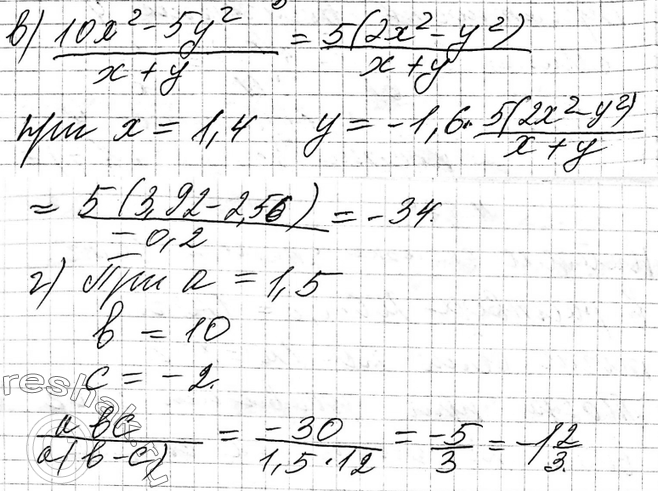 в) (10x² - 5y²)/(x + y) = 5(2x² - y²)/(x + y)
при x = 1,4 y = -1,6. 5(2x² - y²)/(x + y)
= 5(3,92 - 2,56)/(-0,2) = -34.
г) При a = 1,5
b = 10
c = -2.
abc/(a(b - c)) = -30/(1,5 · 12) = -5/3 = -1 2/3.
reshak.ru